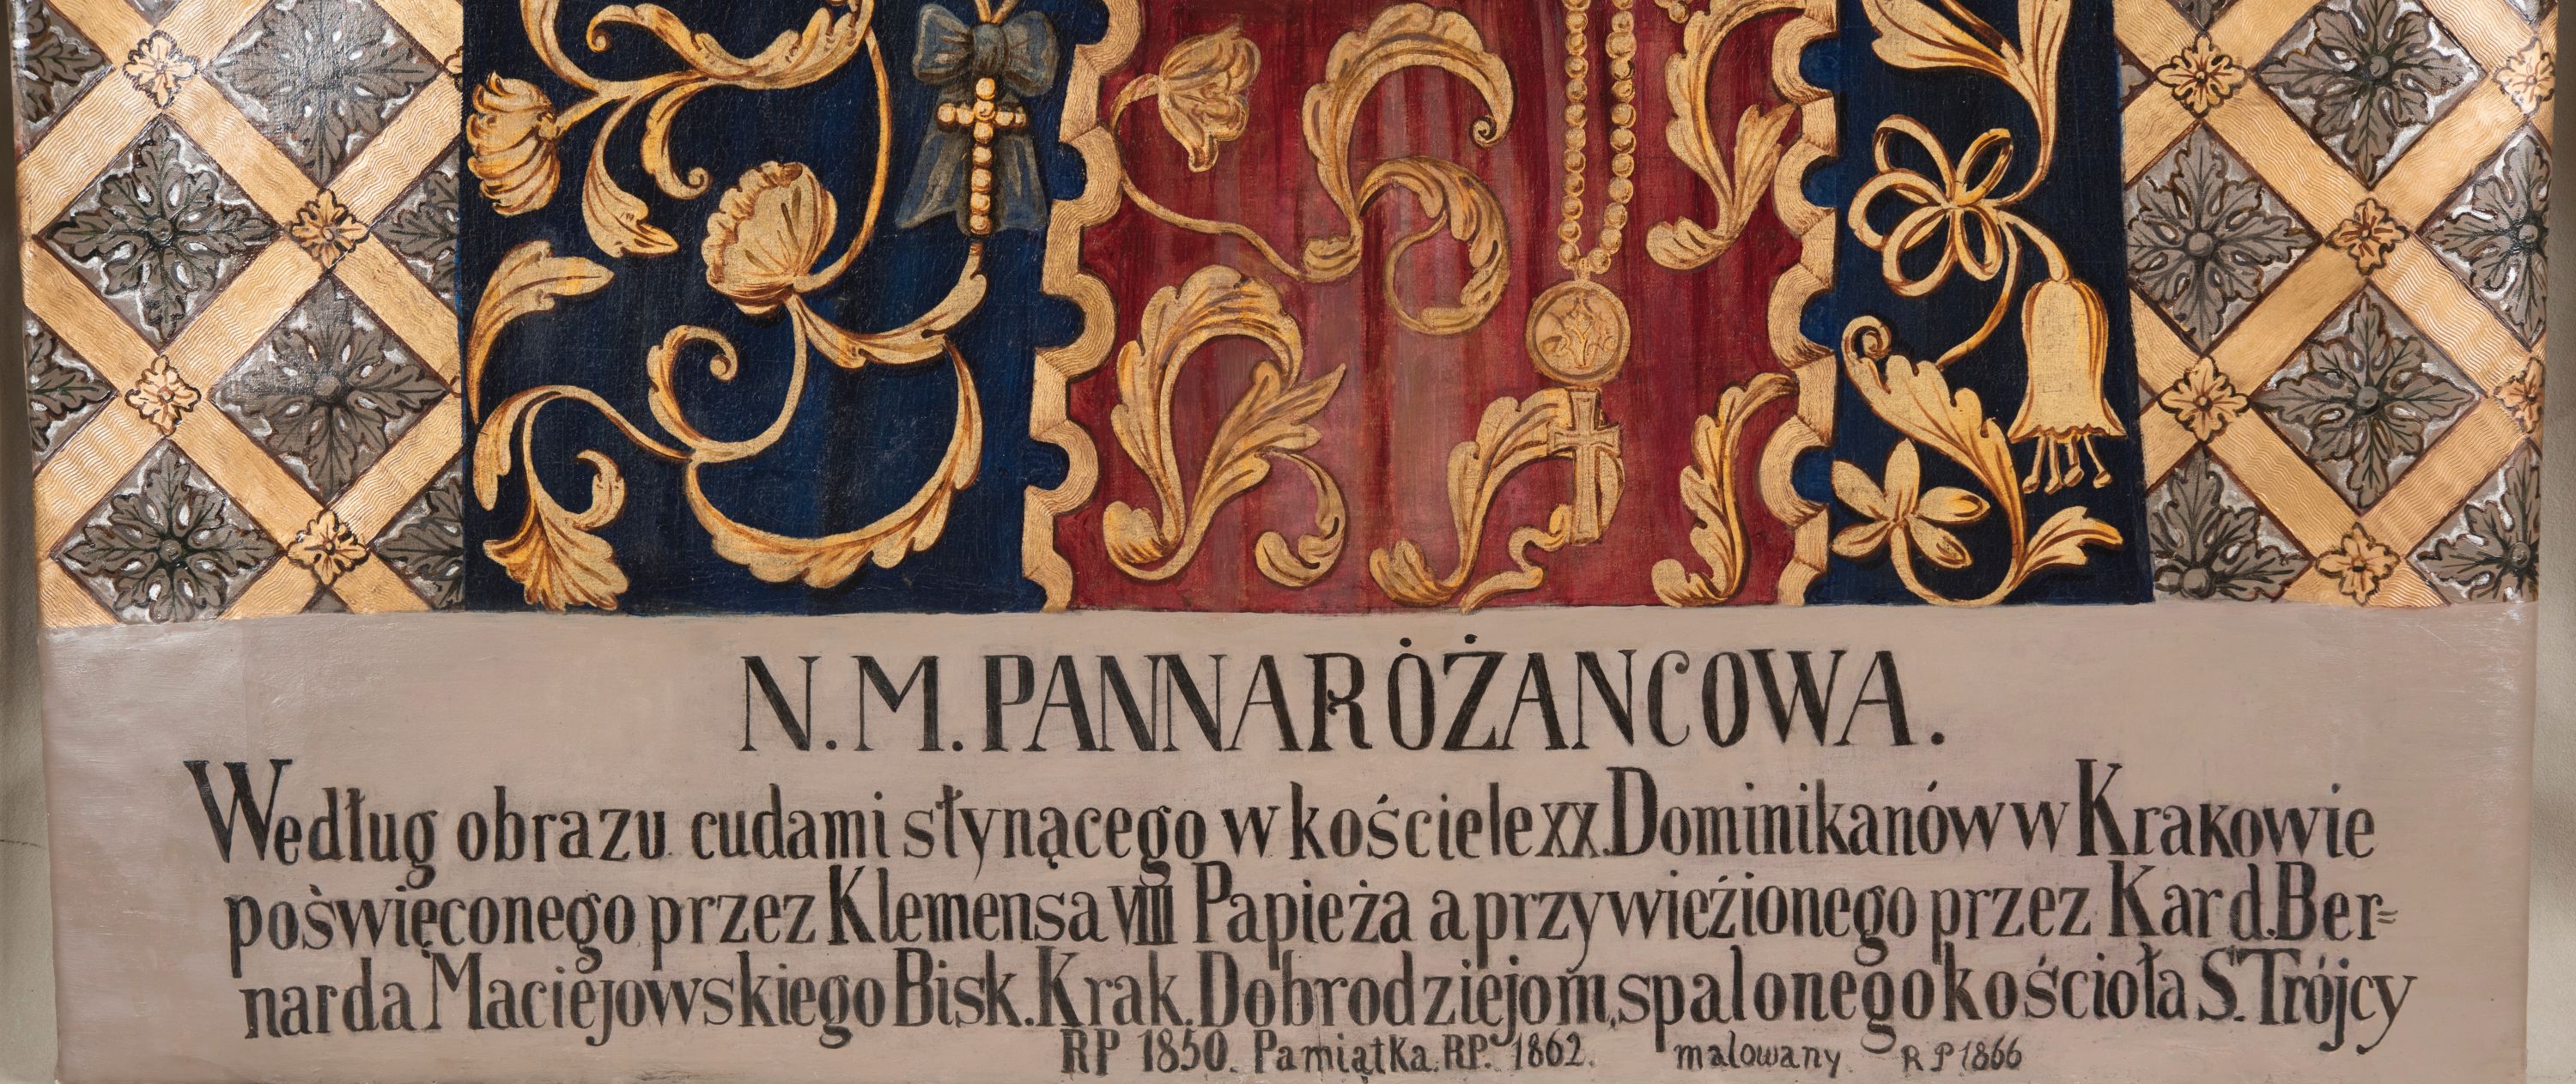 N. M. PANNA RÓŻANCOWA.
Według obrazu cudami słynącego w kościele XX. Dominikanów w Krakowie
poświęconego przez Klemensa VIII Papieża a przywieźionego przez Kard. Ber=
narda Maciejowskiego Bisk. Krak. Dobrodziejom, spalonego kościoła S. Trójcy
RP 1850. Pamiątka. RP. 1862. malowany RP 1866